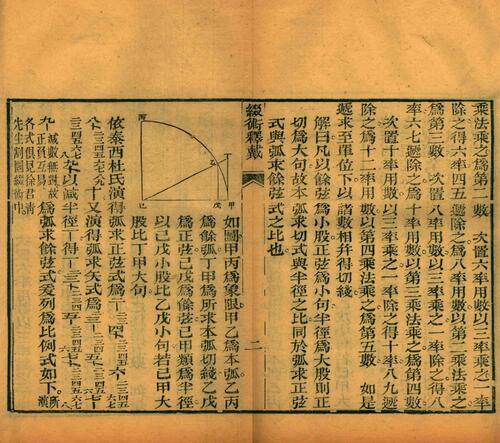 乘法乘之為第二數　次置六率用數以三率乘之一率
除之得六率四五遞除之為八率用數以第二乘法乘之
為第三數　次置八率用數以三率乘之一率除之得八
率六七遞除之為十率用數以第三乘法乘之為第四數
次置十率用數以三率乘之一率除之得十率八九遞
除之為十二率用數以第四乘法乘之為第五數　如是
遞求至單位下以諸數相并得切綫
解曰凡以餘弦為小股正弦為小句半徑為大股則正
切為大句故本弧求切式與半徑之比同於弧求正弦
式與弧求餘弦式之比也
綴術釋戴
二
丙
乙
丁
己
戊
甲
如圖甲丙為象限甲乙為本弧乙丙
為餘弧丁甲為所求本弧切綫乙戊
為正弦己戊為餘弦己甲類為半徑
以己戊小股比乙戊小句若己甲大
股比丁甲大句
依泰西杜氏演得弧求正弦式為
又演得弧求矢式為
以減半徑
得
減數無對故
正負互易
為弧求餘弦式爰列為比例式如下
所演
各式俱見徐君青
先生割圜綴術中